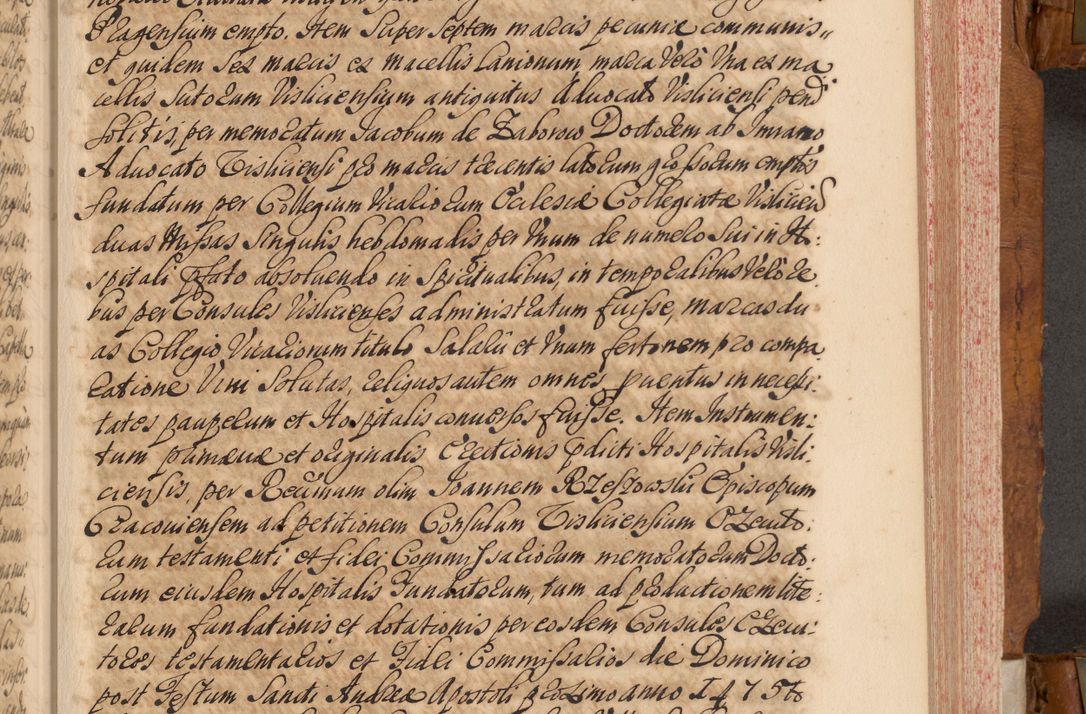 Plagensium empto. Item super septem marcis pecuniæ communis,,
et quidem sex marcis ex macellis Lanionum marca vero Una ex ma
cellis sutorum Visliciensium antiquitus Advocato Visliciensi pend
solitis, per memoratum Jacobum de Zaborow Doctorem ab Imramo
Advocato Visliciensi pro marcis trecentis latorum grossorum emptis
fundatum per Collegium Vicariorum Ecclesiæ Collegiatæ Vislicien
duas Missas singulis hebdomadis per Unum de numero sui in Ho:
spitali pfato absoluendo in spiritualibus, in temporalibus vero re
bus per Consules Vislicienses administratum fuisse, marcas du
as Collegio Vicariorum titulo Salarii et Unum fertonem pro compa
ratione Vini solutas, reliquos autem omnes puentus in necessi:
tates pauperum et Hospitalis conuersos fuisse. Item Instrumen:
tum primæuæ et originalis Erectionis pdicti Hospitalis Visli:
ciensis, per Rndissimum olim Joannem Rzeszowski Episcopum
Cracouiensem ad petitionem Consulum Visliciensium Executo:
rum testamenti et fidei Commissariorum memoratorum Docto:
rum eiusdem Hospitalis Fundatorum, tum ad productionem lite:
rarum fundationis et dotationis per eosdem Consules Execu:
tores testamentarios et Fidei Commissarios die Dominico
post Festum Sancti Andreæ Apostoli proximo anno 1475to